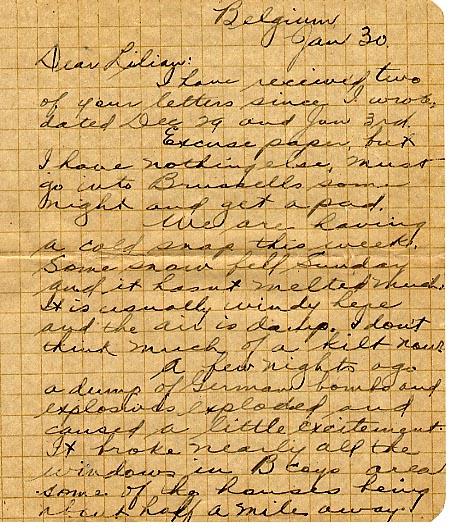 Belgium
Jan 30.
Dear Lilian:
I have received two
of your letters since I wrote,
dated Dec 29 and Jan 3rd.
Excuse paper, but
I have nothing else, must
go into Brussells some
night and get a pad.
We are having
a cold snap this week.
Some snow fell Sunday
and it hasnt melted much.
It is usually windy here
and the air is damp. I don't
think much of a kilt now.
A few nights ago
a dump of German bombs and
explosives exploded and
caused a little excitement.
It broke nearly all the
windows in B Coys area
some of the houses being
about half a mile away.